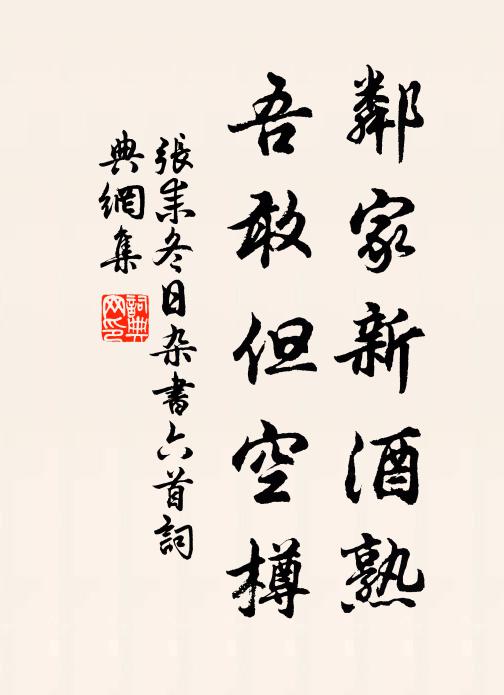 鄰家新酒熟
吾敢但空樽
張耒冬日杂書六首詞
典網集
詞典网印